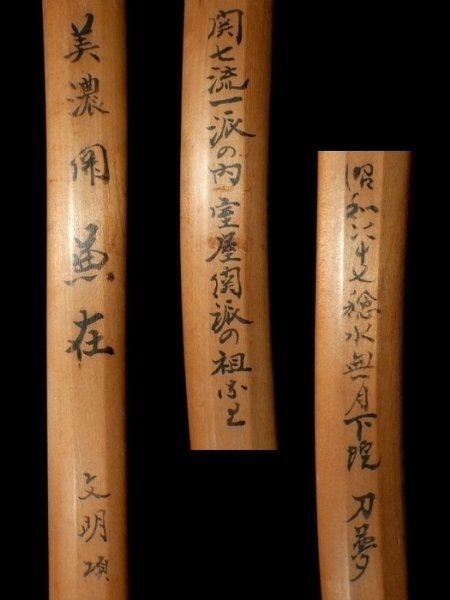 美濃関兼在 文明頃
関七流一派の内室屋関派の祖なり
昭和六十七稔水無月下浣 刀夢